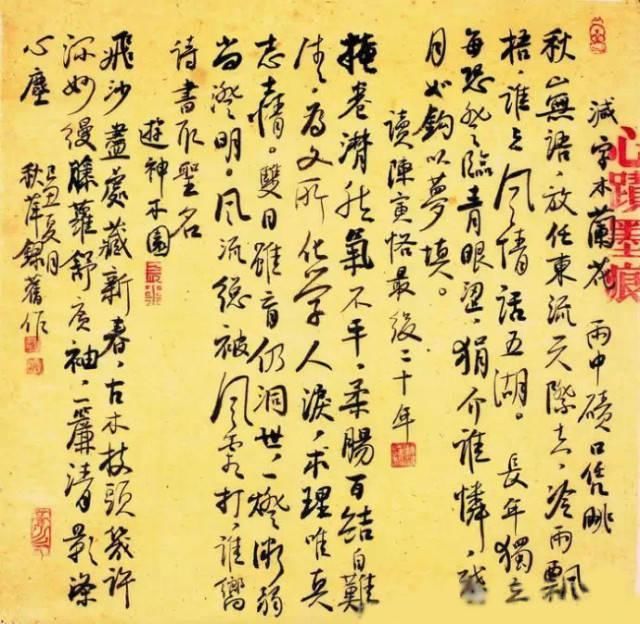 心蹟墨痕
减字木蘭花 雨中磧口凭眺
秋山無語，放任東流天際去，冷雨飄
梧，誰立風情話五湖。長年獨立
每恐登臨青眼澀，狷介誰憐，殘
月如鈎以夢填。
讀陳寅恪最後二十年
掩卷潸然氣不平，柔腸百結自難
清，為文所化學人淚，求理唯真
志情。雙目雖盲仍洞世，一燈漸弱
尚澄明。風流總被風霜打，誰嚮
詩書取聖名
遊神木園
飛沙盡處藏新春，古木枝頭幾許
深妙縵藤蘿舒廣袖，一簾清影滌
心塵
己丑夏月
秋萍錄舊作